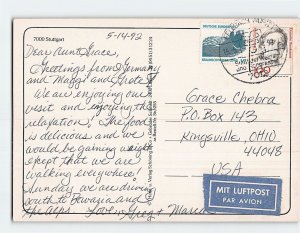 7000 Stuttgart
5-14-92
Dear Aunt Grace,
Greetings from Germany
and Margi and Grote. We
are enjoying our
visit and enjoying the
relaxation. The food
is delicious and we
would be gaining weight
except that we are
walking everywhere!
Sunday we are driving
south to Bavaria and
the Alps. Love, Greg + Maria
DEUTSCHE BUNDESPOST
Grace Chebra
P.O. Box 143
Kingsville, OHIO
44048
USA
MIT LUFTPOST
PAR AVION